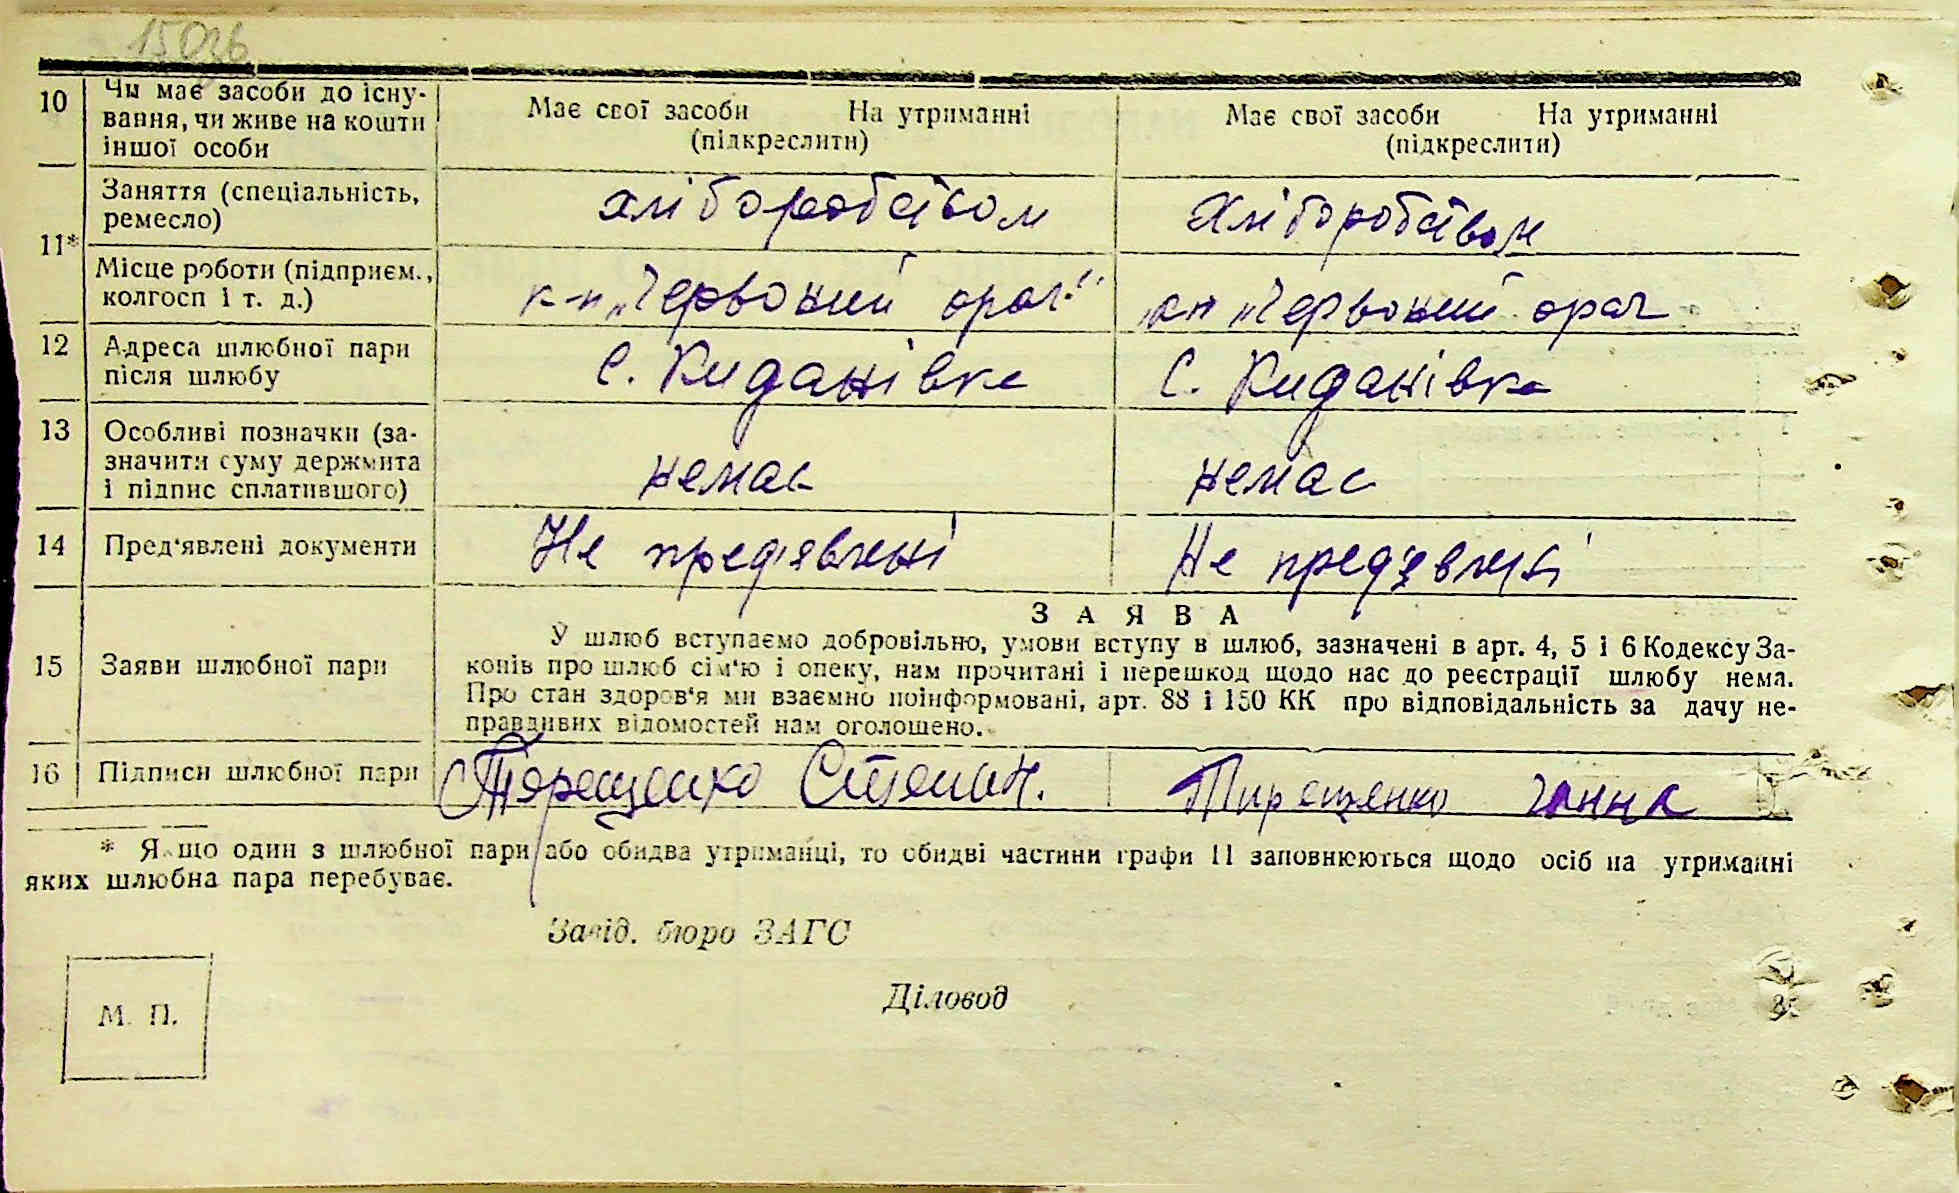 15 Озв
10 Чи має засоби до існу- Має свої засоби На утриманні Має свої засоби На утриманні
вання, чи живе на кошти (підкреслити) (підкреслити)
іншої особи
Заняття (спеціальність, хліборобством Хліборобством
ремесло)
11*
Місце роботи (підприєм., к-п „Червоний орач" к-п „Червоний орач
колгосп і т. д.)
12 Адреса шлюбної пари С. Киданівка С. Киданівка
після шлюбу
13 Особливі позначки (за-
значити суму держмита немає немає
і підпис сплатившого)
14 Пред'явлені документи Не пред'явлені Не пред'явлені
З А Я В А
У шлюб вступаємо добровільно, умови вступу в шлюб, зазначені в арт. 4, 5 і 6 Кодексу За-
15 Заяви шлюбної пари конів про шлюб сім'ю і опеку, нам прочитані і перешкод щодо нас до реєстрації шлюбу нема.
Про стан здоров'я ми взаємно поінформовані, арт. 88 і 150 КК про відповідальність за дачу не-
правдивих відомостей нам оголошено.
16 Підписи шлюбної пари Терещенко Степан. Тирещенко ганна
* Якщо один з шлюбної пари або обидва утриманці, то обидві частини графи 11 заповнюються щодо осіб на утриманні
яких шлюбна пара перебуває.
Завід. бюро ЗАГС
Діловод
М. П.